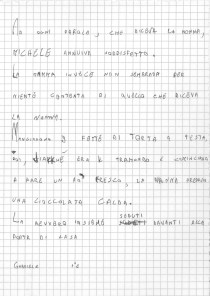 AD OGNI PAROLA, CHE DICEVA LA NONNA,
MICHELE ANNUIVA SODDISFATTO.
LA MAMMA INVECE NON SEMBRAVA PER
NIENTE CONTENTA DI QUELLO CHE DICEVA
LA NONNA.
MANGIARONO FEME DI TORTA
POI, ERA IL TRAMONTO E COMINCIAVA
A FARE UN PO' FRESCO, LA NONNA PREPARÒ
UNA CIOCCOLATA CALDA.
LA BEVVERO INSIEME SEDUTI DAVANTI ALLA
PORTA DI CASA